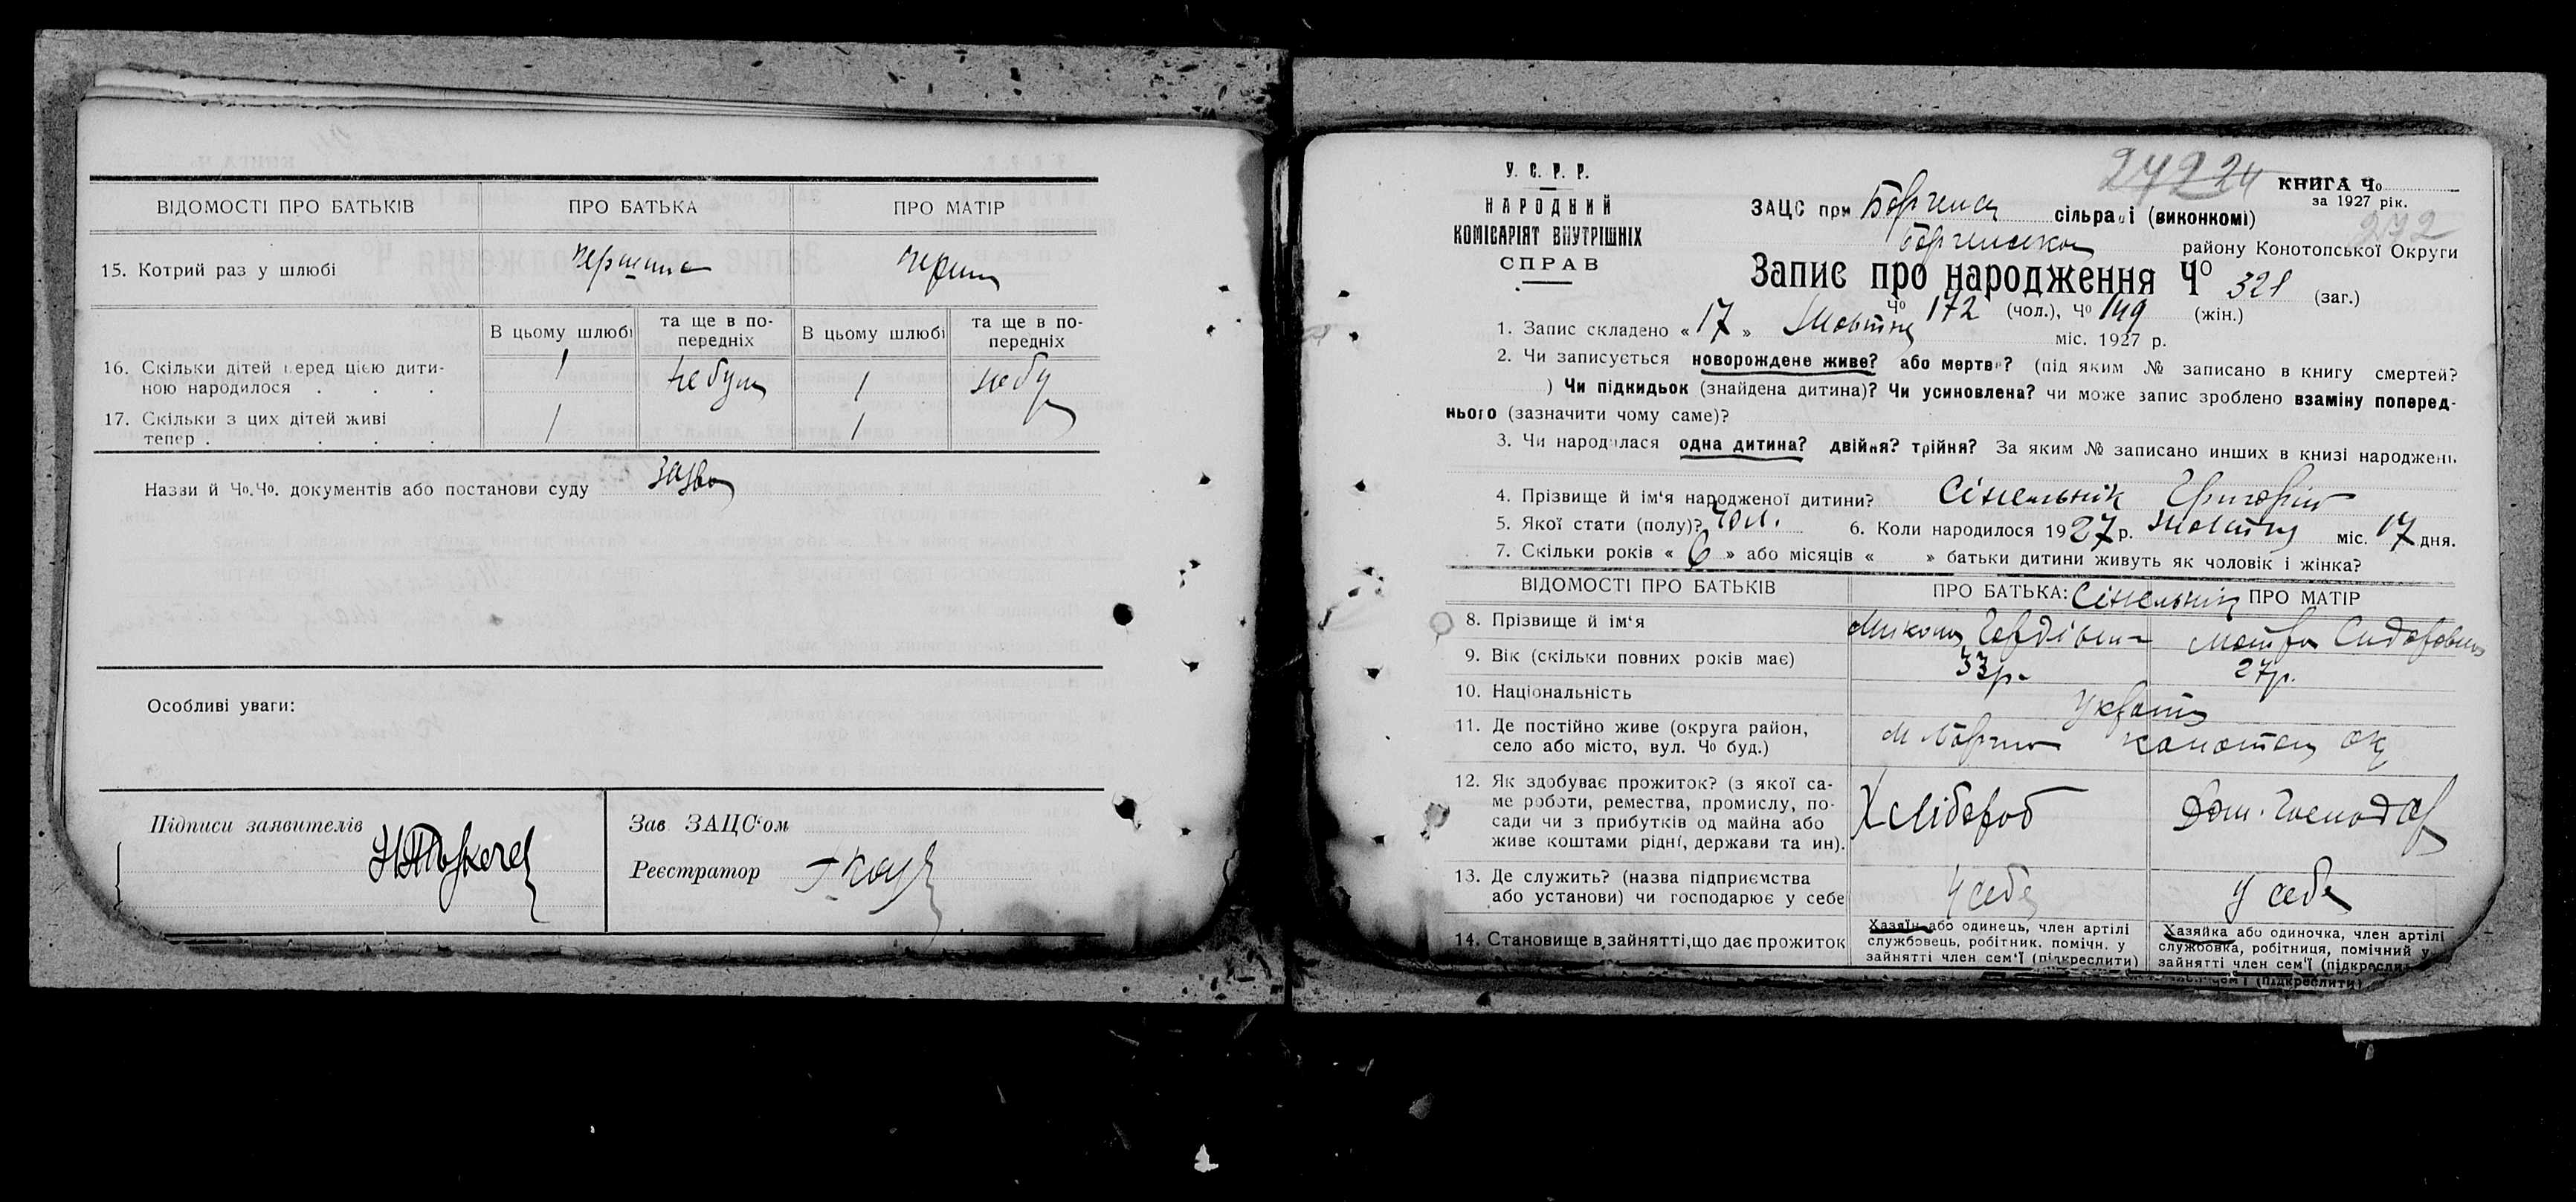 ВІДОМОСТІ ПРО БАТЬКІВ ПРО БАТЬКА ПРО МАТІР
15. Котрий раз у шлюбі
В цьому шлюбі та ще в по- В цьому шлюбі та ще в по-
передніх передніх
16. Скільки дітей перед цією дити-
ною народилося . . . 1 1
17. Скільки з цих дітей живі
тепер . . . . . 1 1
Назви й Чо.Чо. документів або постанови суду
Особливі уваги:
Підписи заявителів
Зав ЗАЦС‘ом
Реєстратор
У. С. Р. Р.
НАРОДНИЙ
КОМІСАРІЯТ ВНУТРІШНІХ
СПРАВ
КНИГА Чо
за 1927 рік.
272
ЗАЦС при сільраді (виконкомі)
району Конотопської Округи
Запис про народження Чо 321 (заг.)
Чо 172 (чол.), Чо 149 (жін.)
1. Запис складено « 17 » Жовтня міс. 1927 р.
2. Чи записується новорождене живе? або мертве? (під яким № записано в книгу смертей?
) Чи підкидьок (знайдена дитина)? Чи усиновлена? чи може запис зроблено взаміну поперед-
нього (зазначити чому саме)?
3. Чи народилася одна дитина? двійня? трійня? За яким № записано инших в книзі народжень
4. Прізвище й ім‘я народженої дитини? Сінельнік Григорій
5. Якої стати (полу)? чол. 6. Коли народилося 1927 р. Жовтня міс. 17 дня.
7. Скільки років « 6 » або місяців « » батьки дитини живуть як чоловік і жінка?
ВІДОМОСТІ ПРО БАТЬКІВ ПРО БАТЬКА: Сінельнік ПРО МАТІР
8. Прізвище й ім‘я
9. Вік (скільки повних років має) 33 р. 27 р.
10. Національність
11. Де постійно живе (округа район,
село або місто, вул. Чо буд.)
12. Як здобуває прожиток? (з якої са-
ме роботи, ремества, промислу, по-
сади чи з прибутків од майна або
живе коштами рідні, держави та ин).
Хлібороб Дом. Господар
13. Де служить? (назва підприємства
або установи) чи господарює у себе
у себе у себе
14. Становище в зайнятті, що дає прожиток
Хазяїн або одинець, член артілі
службовець, робітник. помічн. у
зайнятті член сем‘ї (підкреслити)
Хазяйка або одиночка, член артілі
службовка, робітниця, помічний у
зайнятті член сем‘ї (підкреслити